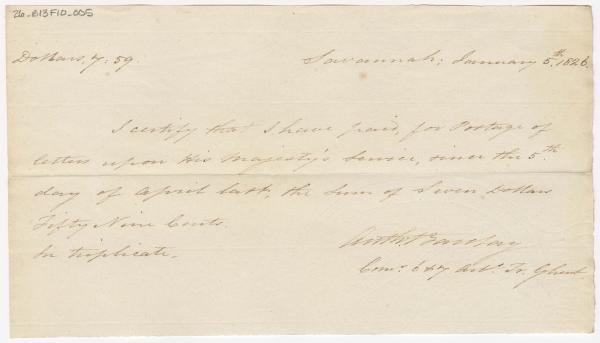 26_B13F10_005
Dollars, 7:59.
Savannah; January 5.th 1826.
I certify that I have paid, for Postage of
letters upon His Majesty's Service, since the 5.th
day of April last, the Sum of Seven Dollars
Fifty Nine Cents.
In triplicate.
Anth: Barclay
Com.r 6 & 7 Art.s Tr. Ghent